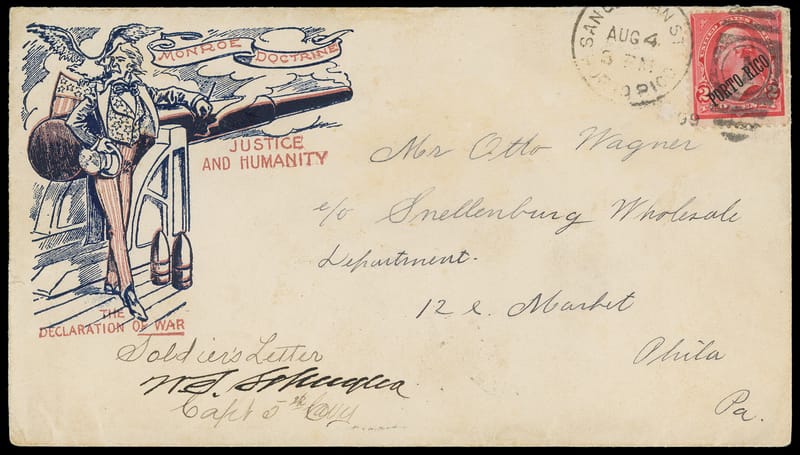 MONROE DOCTRINE
JUSTICE
AND HUMANITY
THE
DECLARATION OF WAR
SAN
AUG 4
PORTO RICO
2 2
99
Mr Otto Wagner
c/o Snellenburg Wholesale
Department.
12 & Market
Phila
Pa.
Soldier's Letter
Capt 5th Cavy